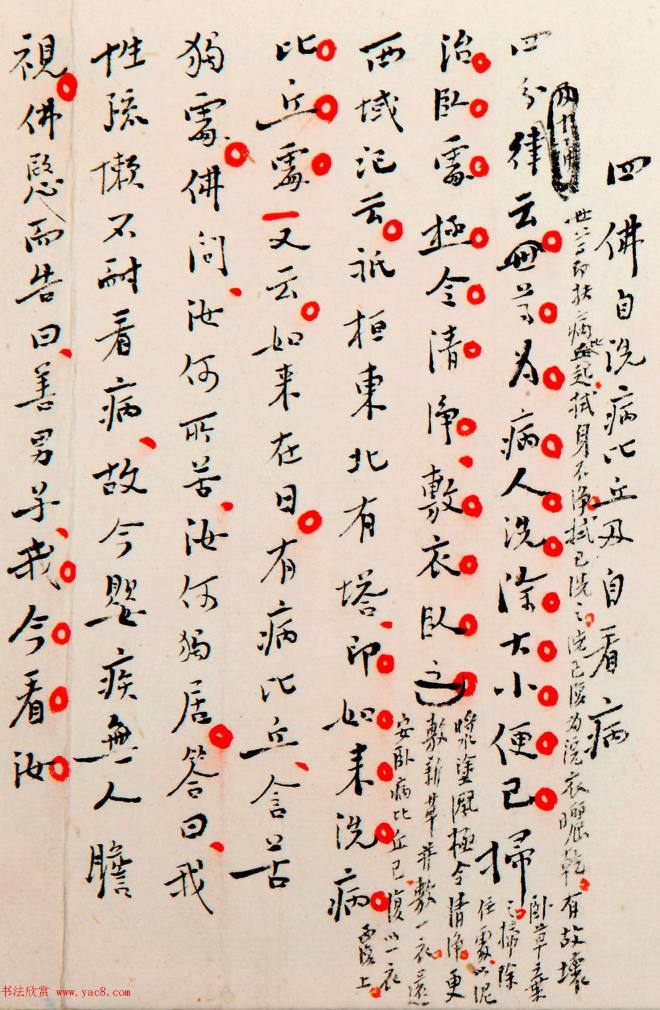 四佛自洗病比丘及自看病
世尊即扶病比丘起拭身不净拭已洗之洗已復为浣衣曬乾有故壞
卧草棄之掃除住處以泥
漿塗洒極令清净更
敷新草并敷一衣還
安卧病比丘已復以一衣覆上
四分律云世尊为病人洗除大小便已掃
治卧處極令清净敷衣卧之
西域记云祇桓東北有塔即如来洗病
比丘處又云如来在日有病比丘含苦
獨處佛问汝何所苦汝何獨居答曰我
性疏懒不耐看病故今嬰疾無人瞻
視佛愍而告曰善男子我今看汝
书法欣赏 www.yac8.com